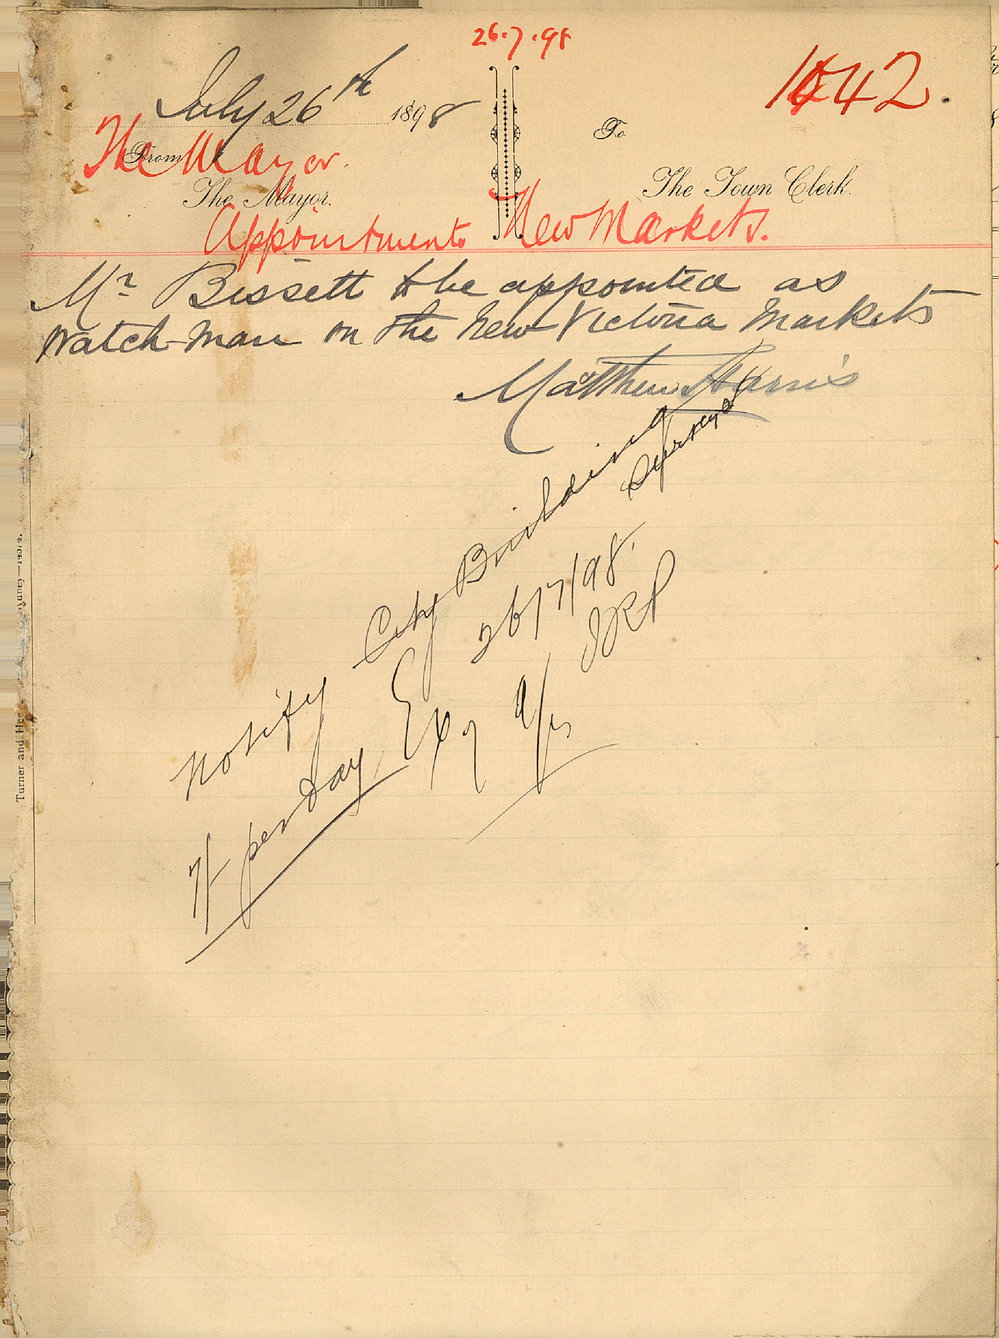 26.7.98
1542.
July 26th 1898
From
To
The Mayor.
The Mayor.
The Town Clerk.
Appointments New Markets.
Mr Bissett to be appointed as
Watch-man on the New Victoria Markets
Matthew Harris
Notify City Building
Surveyor
26/7/98.
7/- per day
Turner and He